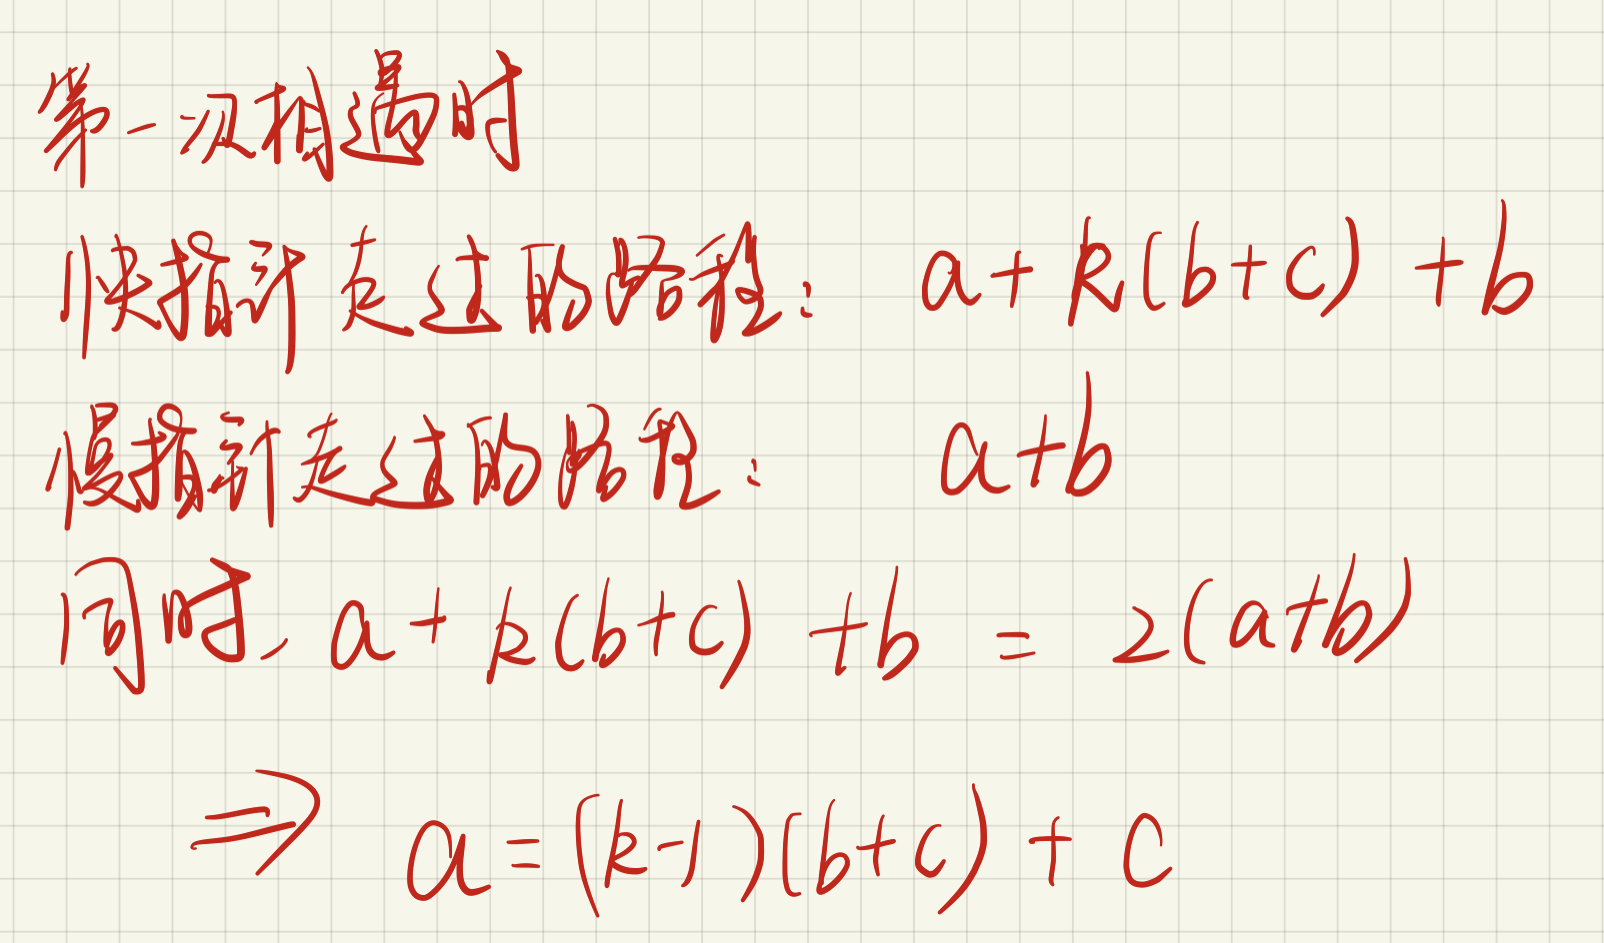 第一次相遇时
快指针走过的路程: a+k(b+c)+b
慢指针走过的路程: a+b
同时, a+k(b+c)+b = 2(a+b)
⇒ a=(k-1)(b+c)+c